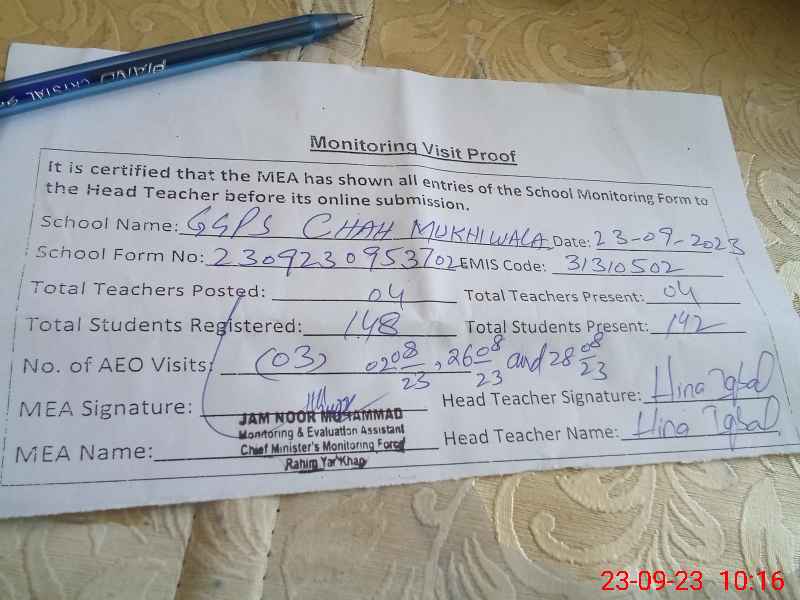 PIANO CRYSTAL
Monitoring Visit Proof
It is certified that the MEA has shown all entries of the School Monitoring Form to
the Head Teacher before its online submission.
School Name: GGPS CHAH MUKHIWALA Date: 23-09-2023
School Form No: 2309230953702 EMIS Code: 31310502
Total Teachers Posted: 04 Total Teachers Present: 04
Total Students Registered: 148 Total Students Present: 142
No. of AEO Visits: (03) 02 08/23, 26 08/23 and 28 08/23
MEA Signature: Head Teacher Signature: Hina Iqbal
JAM NOOR MUHAMMAD
Monitoring & Evaluation Assistant
Chief Minister's Monitoring Force
Rahim Yar Khan
MEA Name: Head Teacher Name: Hina Iqbal
23-09-23 10:16